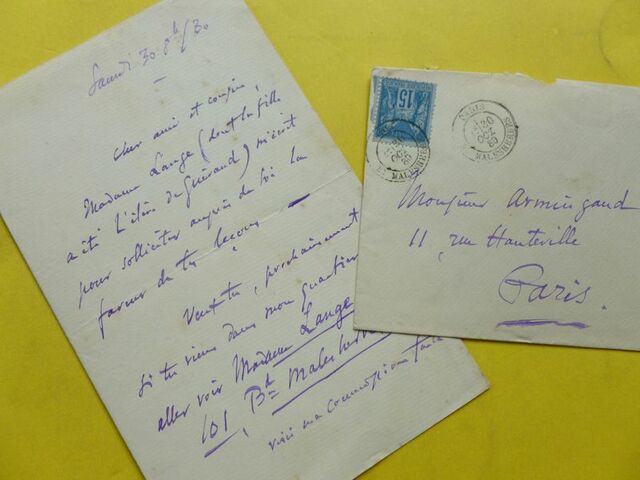 Samedi 30 8bre/80
Cher ami et cousin,
Madame Lange (dont la fille
a été l'élève de Guéraud) m'écrit
pour solliciter auprès de toi la
faveur de tes leçons —
Veux-tu, prochainement
si tu viens dans mon quartier
aller voir Madame Lange
101, Bd Malesherbes
voici ma commission faite
15
PARIS
30
OCT
80
MALESHERBES
Monsieur Armingaud
11, rue Hauteville
Paris.